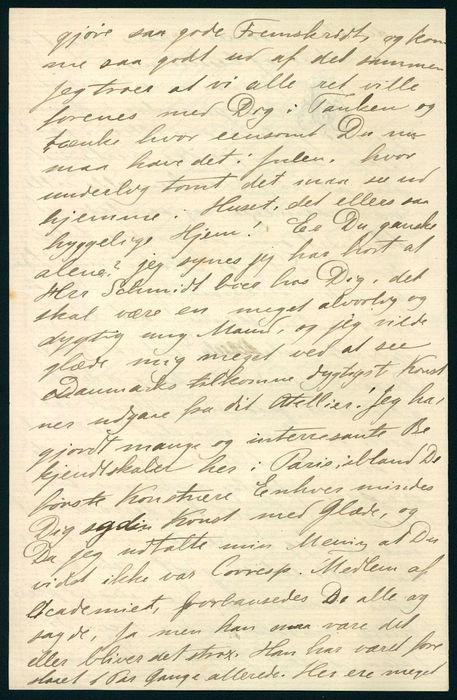 gjøre saa gode Fremskridt, og kom
me saa godt ud af det sammen
jeg troer at vi alle ret ville
forenes med Dig i Tanken og
tænke hvor eensomt Du nu
maa have det i Julen, hvor
underlig tomt det maa see ud
hjemme. Huset, det ellers saa
hyggelige Hjem! Er Du ganske
alene? jeg synes jeg har hørt at
Hrr Schmidt boer hos Dig, det
skal være en meget alvorlig og
dygtig ung Mand, og jeg vilde
glæde mig meget ved at see
Danmarks tilkomne dygtigste Konst
ner udgaae fra dit Attellier! Jeg har
gjordt mange og interresante Be
kjendtskaber her i Paris, ibland De
første Konstnere Enhver mindes
Dig og din Konst med Glæde, og
Da jeg udtalte min Mening at Du
vidst ikke var Corresp. Medlem af
Academiet, foorbausedes De alle og
sagde, Ja men han maa være det
eller bliver det strax. Han har været fore
slaaet i Par Gange allerede. Her ere meget